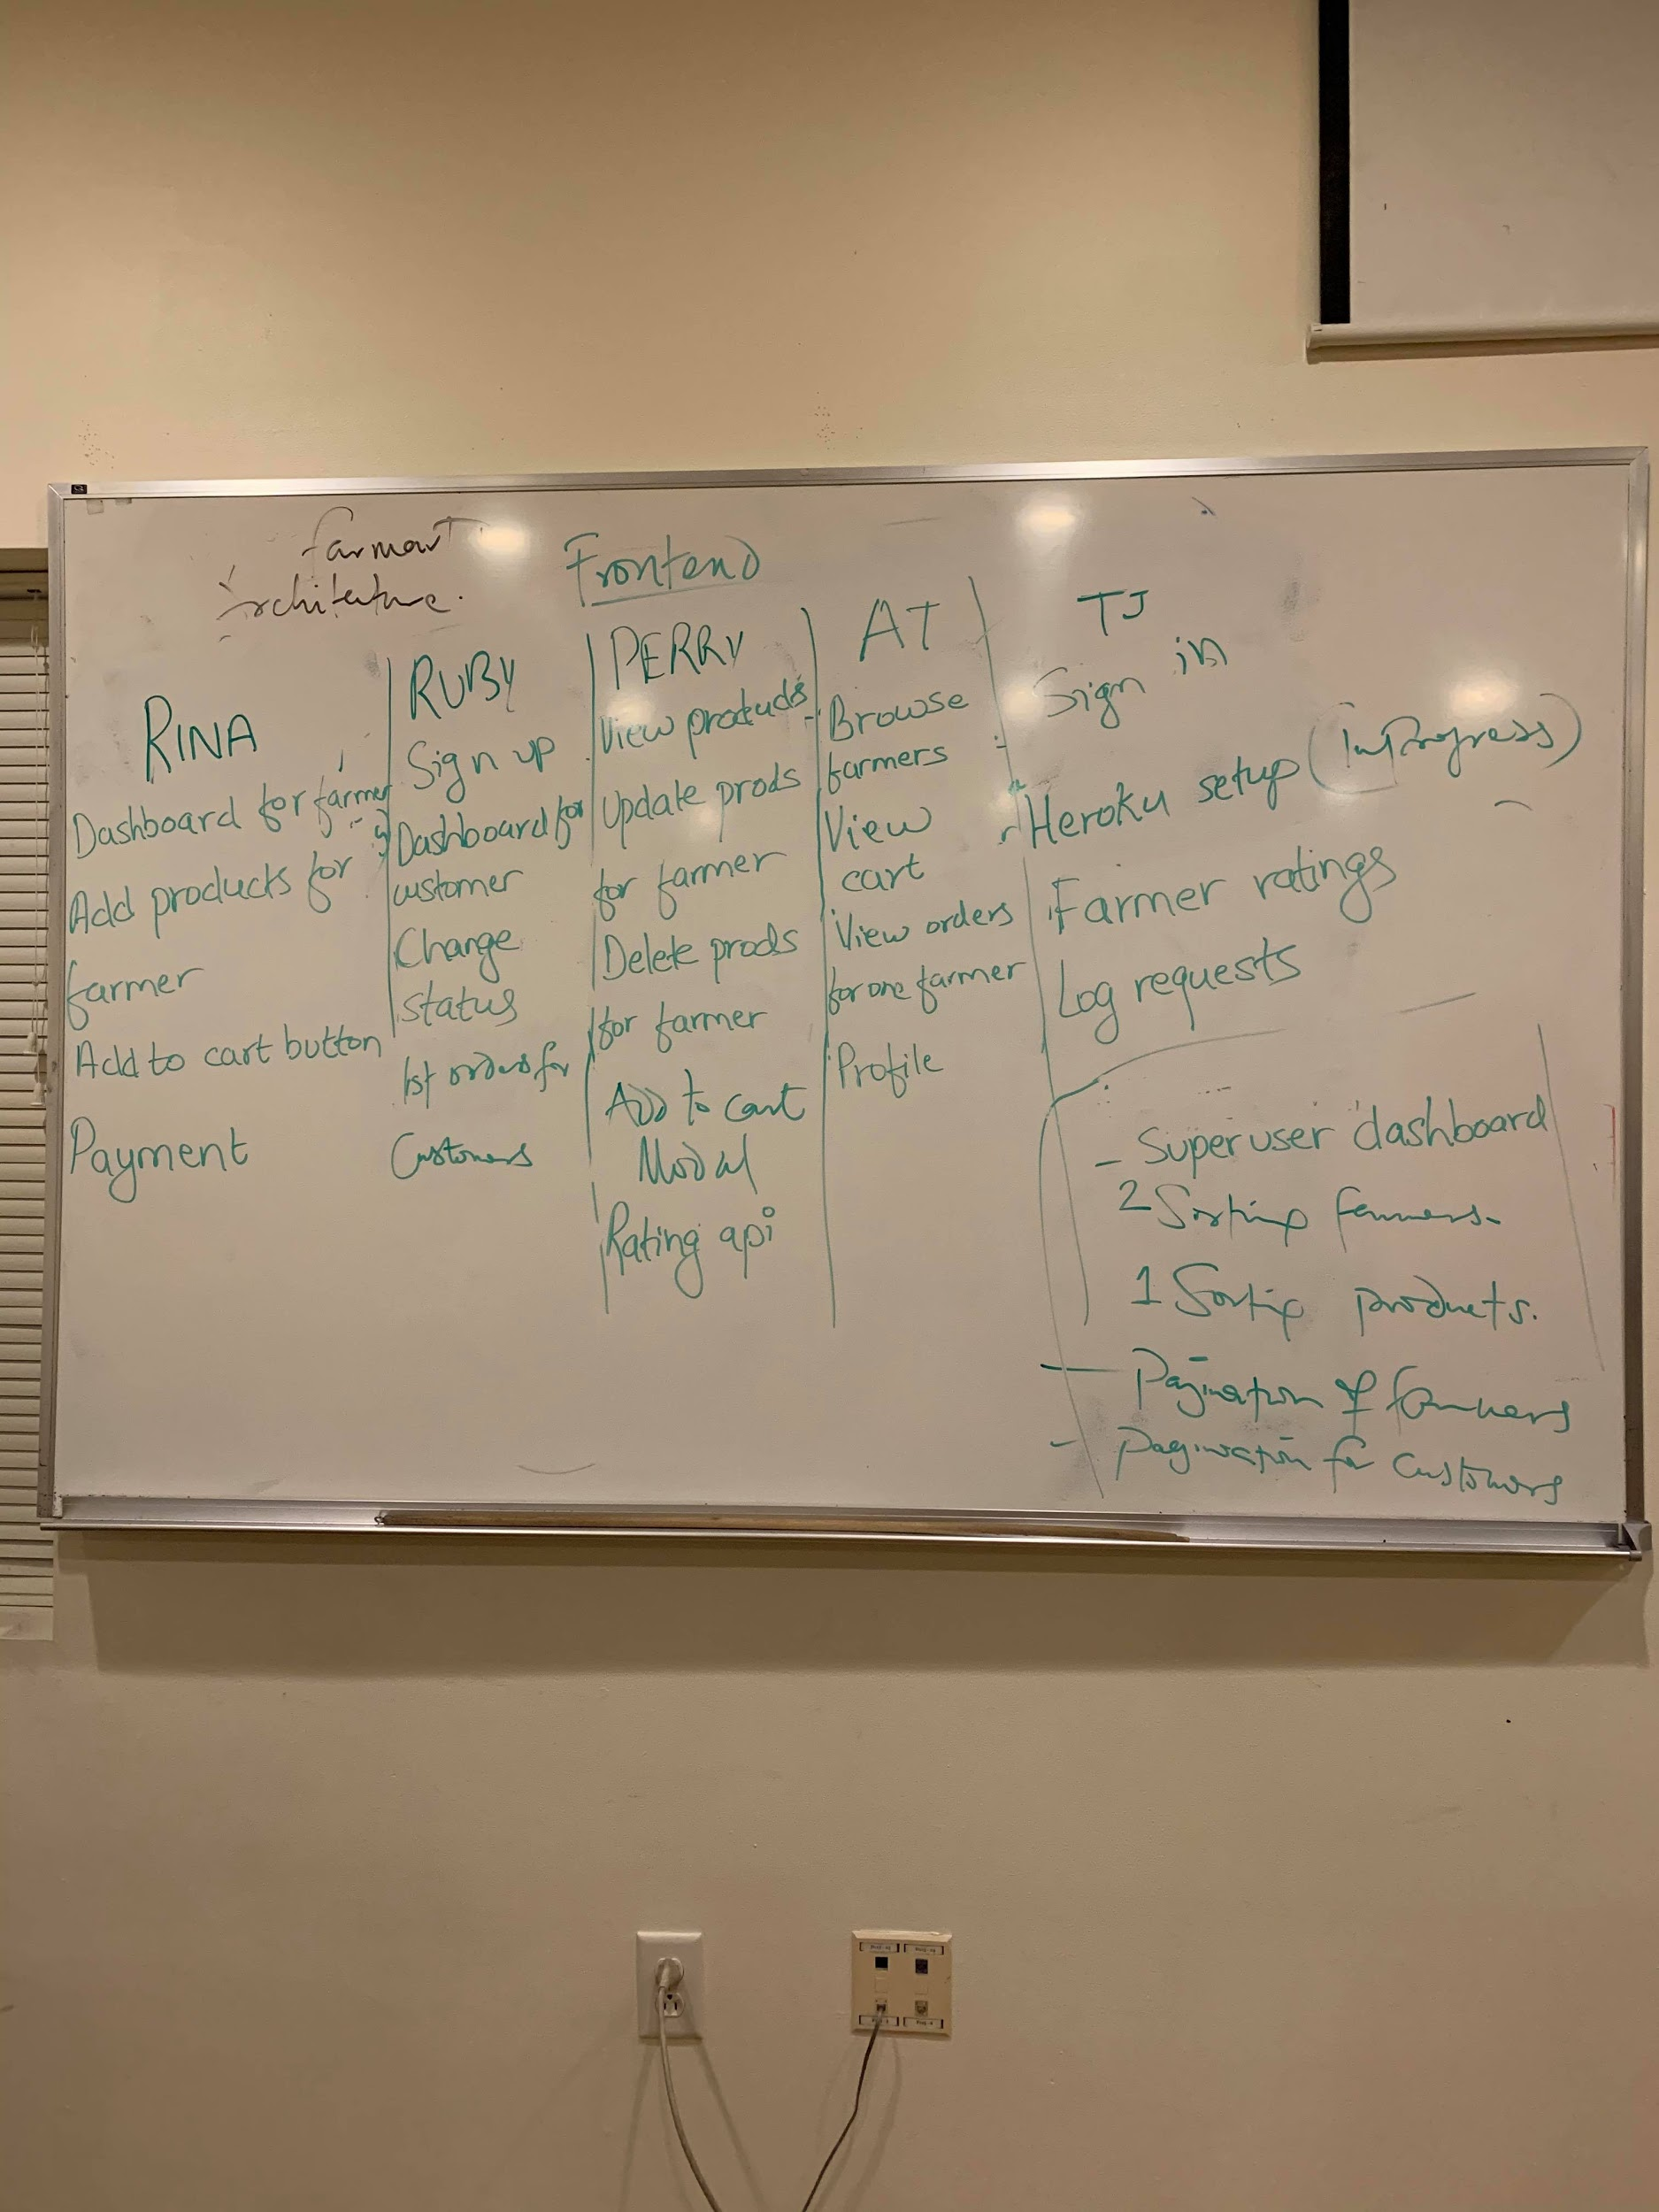 farmart
Architecture.
Frontend
RINA
Dashboard for farmer
Add products for
farmer
Add to cart button
Payment
RUBY
Sign up
Dashboard for
customer
Change
status
orders for
Customers
PERRY
View products
Update prods
for farmer
Delete prods
for farmer
Add to cart
Modal
Rating api
AT
Browse
farmers
View
cart
View orders
for one farmer
Profile
TJ
Sign in
Heroku setup (In Progress)
Farmer ratings
Log requests
- Superuser dashboard
2 Sorting farmers.
1 Sorting products.
- Pagination of farmers
- Pagination for customers